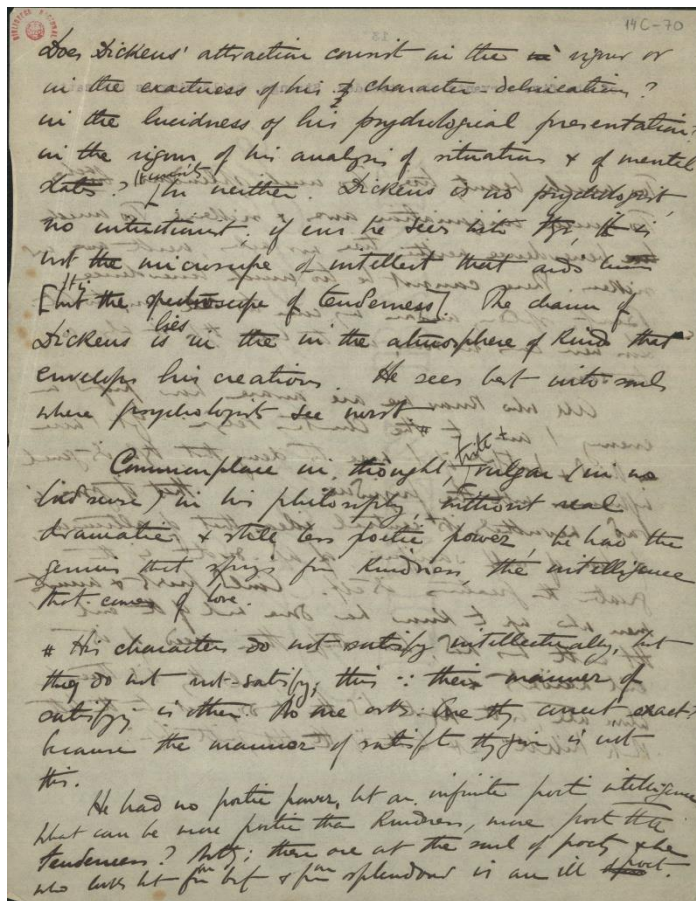 14C-70
Does Dickens' attraction consist in the vigour or
in the exactness of his character-delineation?
in the lucidness of his psychological presentation?
in the vigour of his analysis of situation & of mental
states? In neither. Dickens is no psychologist,
no intuitionist; if ever he sees into it is
not the microscope of intellect that aids him
[but the spectroscope of tenderness]. The charm of
Dickens is lies in the in the atmosphere of kind that
envelops his creations. He sees best into souls
where psychologists see worst #
Commonplace in thought, vulgar (in no
bad sense) in his philosophy, without real
dramatic & still less poetic power, he had the
genius that springs from kindness, the intelligence
that comes of love.
# His characters do not satisfy intellectually, but
they do not not-satisfy; this ∵ their manner of
satisfying is other. No one asks: Are they correct exact?
because the manner of satisfy they give is not
this.
He had no poetic power, but an infinite poetic intelligence
What can be more poetic than kindness, more poetic
tenderness? these are at the soul of poetry & he
who lacks but & splendour is an ill poet.